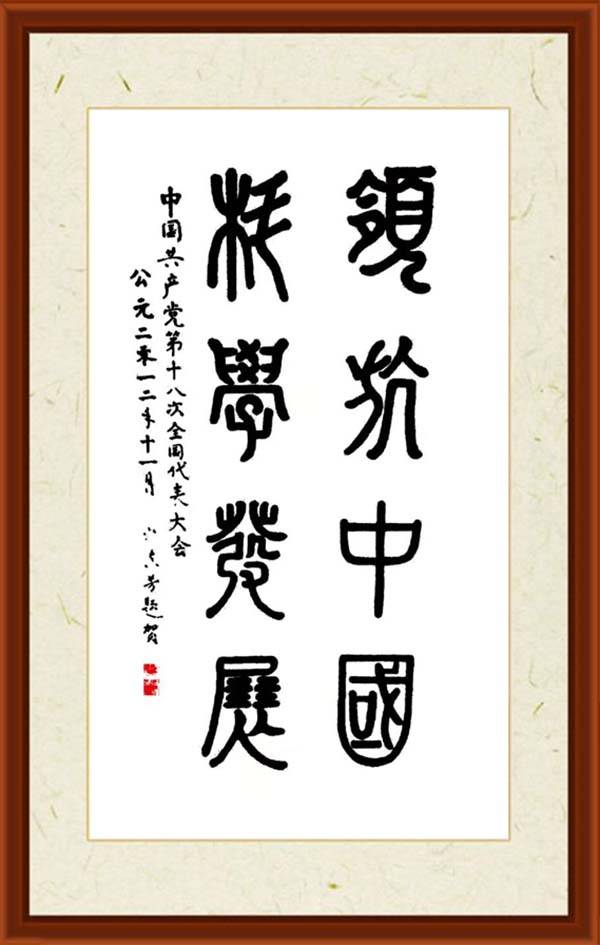 領航中國
科學發展
中国共产党第十八次全国代表大会
公元二零一二年十一月 题贺